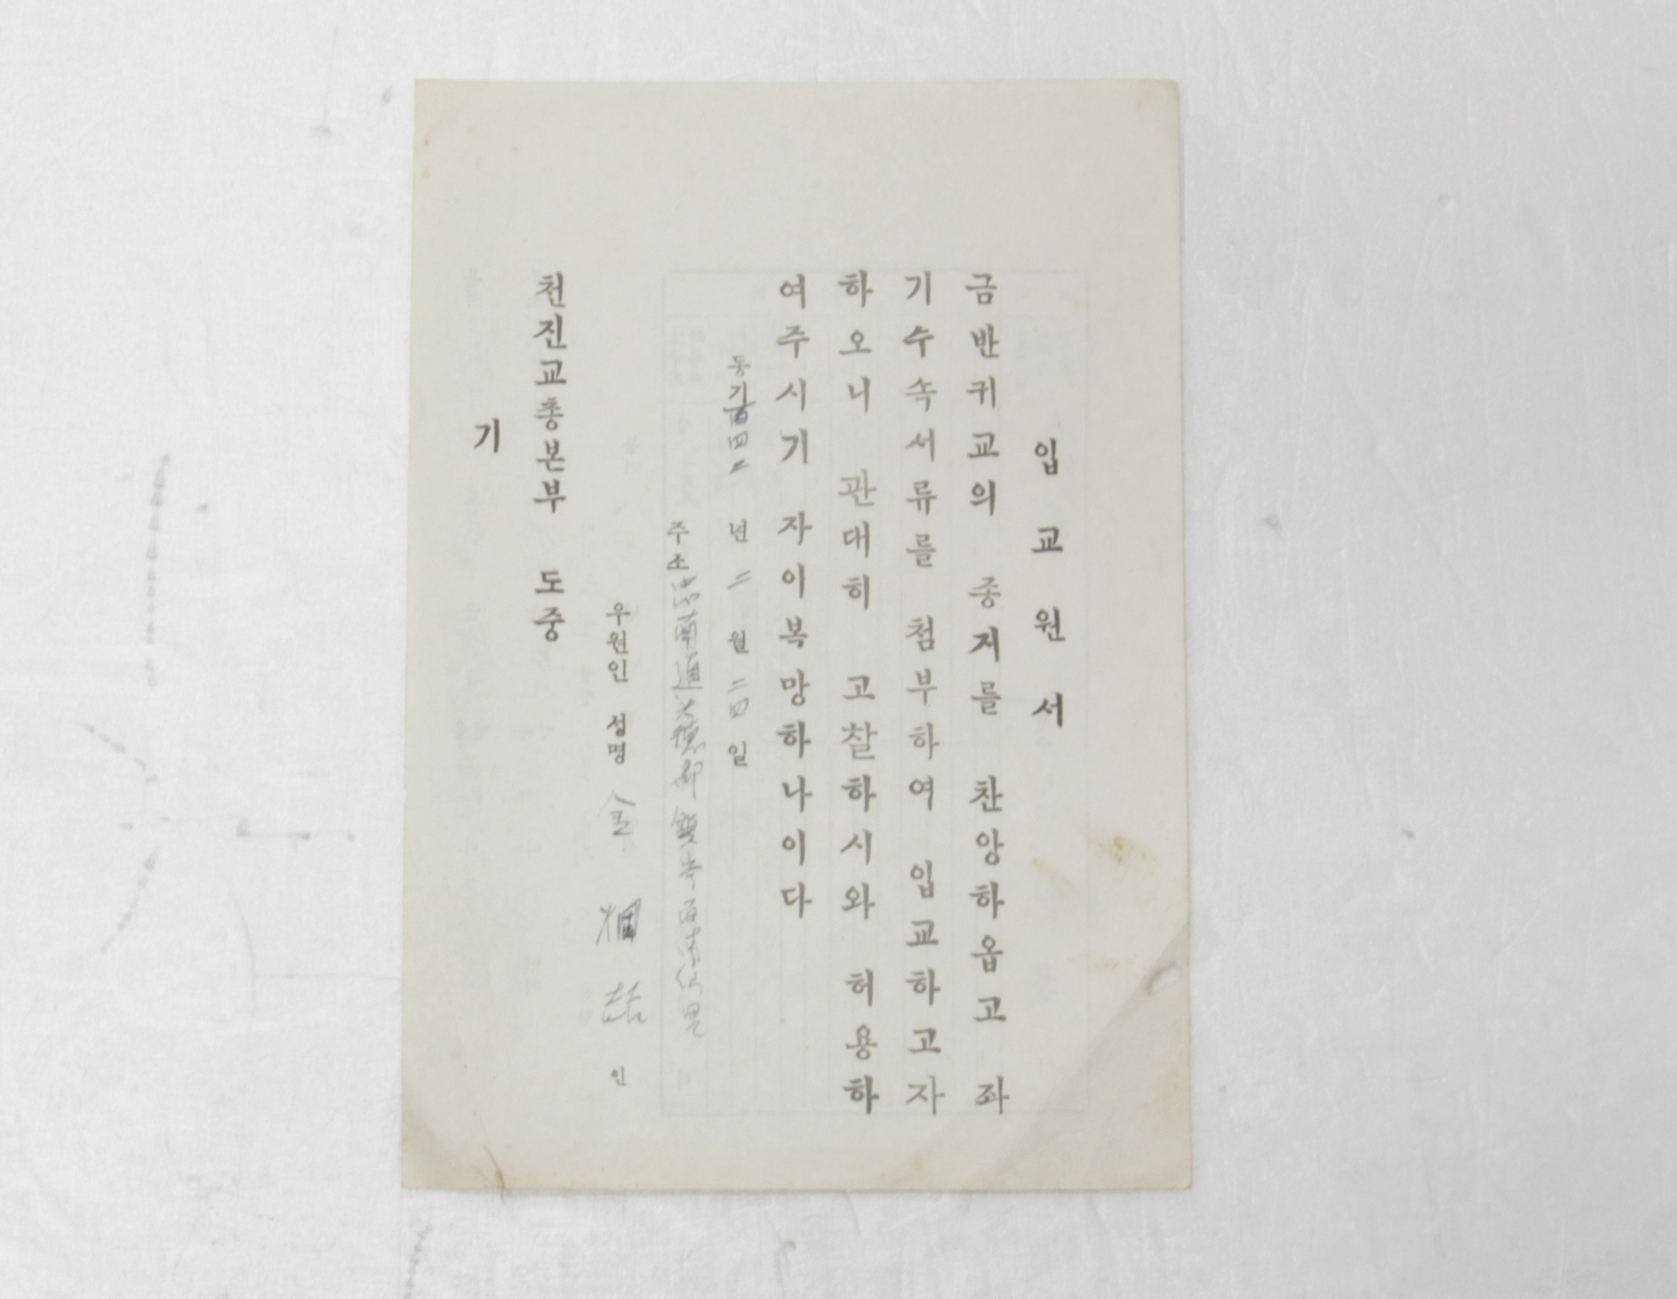 입교원서
금반귀교의 종지를 찬앙하옵고 좌
기수속서류를 첨부하여 입교하고자
하오니 관대히 고찰하시와 허용하
여주시기 자이복망하나이다
동기百四二 년 二 월 二四 일
주소 忠南
우원인 성명 金 喆 인
천진교총본부 도중
기